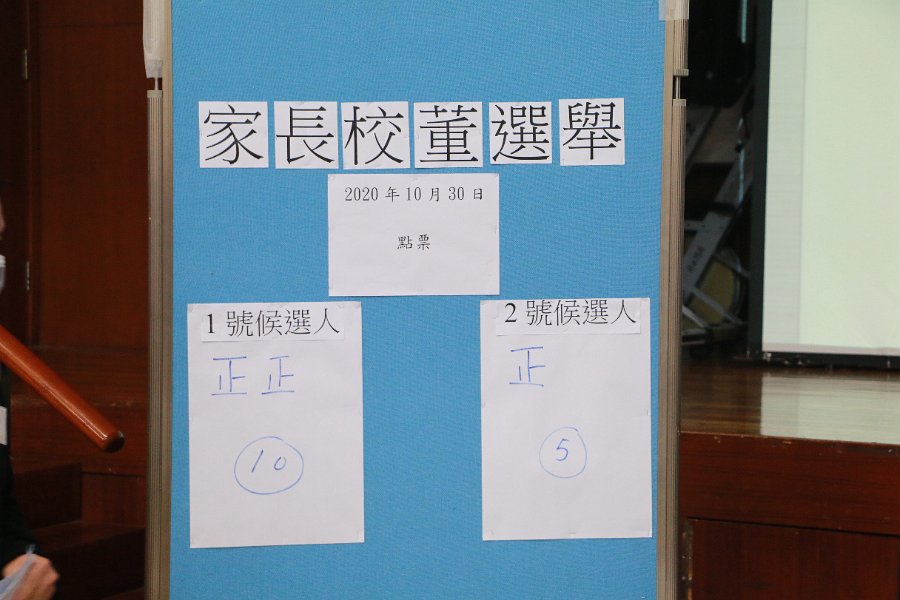 家長校董選舉
2020 年 10 月 30 日
點票
1 號候選人
正正
10
2 號候選人
正
5